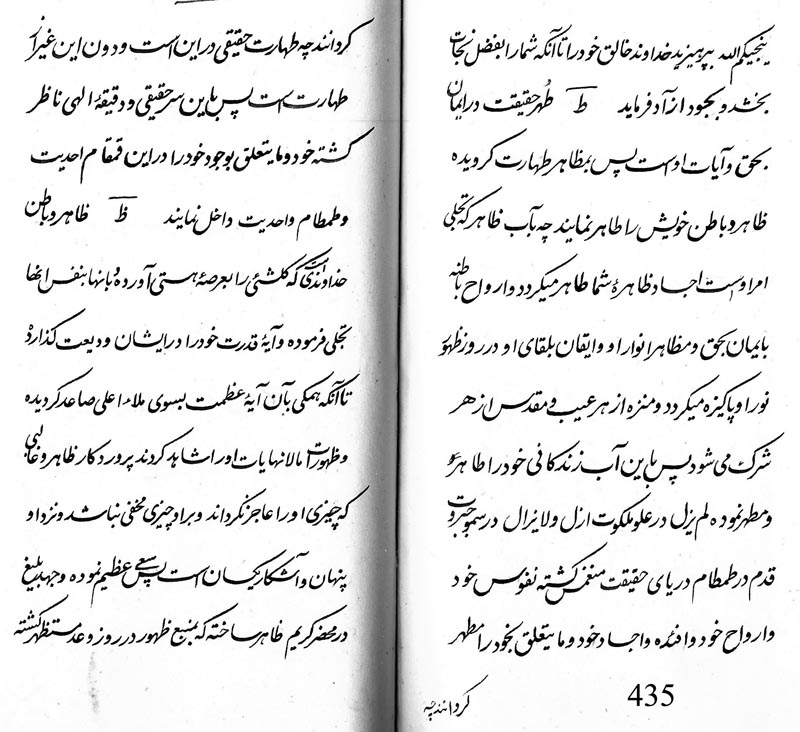 ینجیکم الله بپرهیزید خداوند خالق خود را تا آنکه شما را بفضل نجات
بخشد و بجود از آد فرماید ط طُهر حقیقت در ایمان
بحق و آیات اوست پس بمظاهر طهارت کرویده
ظاهر و باطن خویش را طاهر نمایند چه بآب ظاهر که تجلی
امر اوست اجساد ظاهرهٔ شما طاهر میکردد و ارواح باطنه
بایمان بحق و مظاهر انوار او و ایقان بلقای او در روز ظهور
نور او پاکیزه میکردد و منزه از هر عیب و مقدس از هر
شرک می شود پس باین آب زندکانی خود را طاهر
و مطهر نموده لم یزل در علو ملکوت ازل و لا یزال در سمو جبروت
قدم در طمطام دریای حقیقت منغمس کشته نفوس خود
و ارواح خود و افئده و اجساد خود و ما یتعلق بخود را مطهر
435
کردانند چه
کردانند چه طهارت حقیقی در این است و دون این غیر از
طهارت است پس باین سر حقیقی و دقیقهٔ الهی ناظر
کشته خود و ما یتعلق بوجود خود را در این قمقام احدیت
و طمطام واحدیت داخل نمایند ظ ظاهر و باطن
خداوندی است که کلشئی را بعرصهٔ هستی آورده و بانها بنفس انها
تجلی فرموده و آیهٔ قدرت خود را در ایشان ودیعت کذارده
تا آنکه همکی بآن آیهٔ عظمت بسوی ملاء اعلی صاعد کردیده
و ظهورات ما لا نهایات او را شاهد کردند پروردکار ظاهر و غالبی
که چیزی او را عاجز نکرداند و بر او چیزی مخفی نباشد و نزد او
پنهان و آشکار یکسان است پس سعی عظیم نموده و جهد بلیغ
در محضر کریم ظاهر ساخته که بمنبع ظهور در روز وعد مستظهر کشته